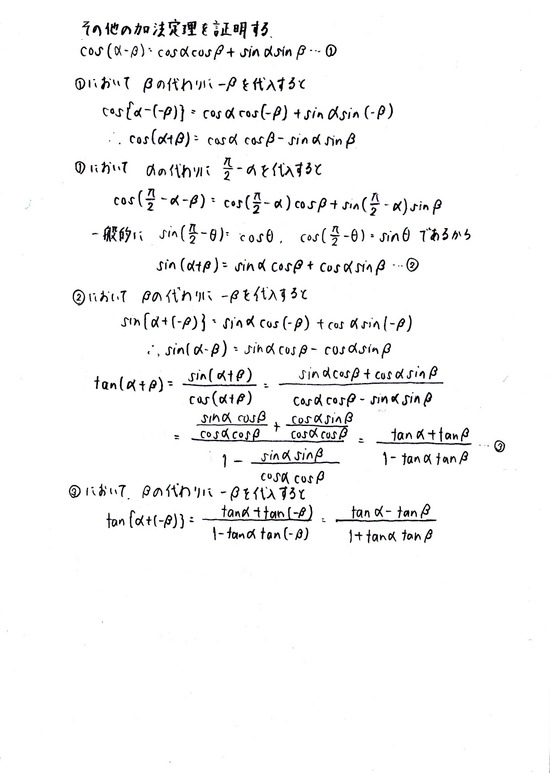 その他の加法定理を証明する
cos(α-β)=cosαcosβ+sinαsinβ…①
①において βの代わりに-βを代入すると
cos{α-(-β)}=cosαcos(-β)+sinαsin(-β)
∴cos(α+β)=cosαcosβ-sinαsinβ
①において αの代わりに π/2-αを代入すると
cos(π/2-α-β)=cos(π/2-α)cosβ+sin(π/2-α)sinβ
一般的に sin(π/2-θ)=cosθ, cos(π/2-θ)=sinθ であるから
sin(α+β)=sinαcosβ+cosαsinβ…②
②において βの代わりに-βを代入すると
sin{α+(-β)}=sinαcos(-β)+cosαsin(-β)
∴sin(α-β)=sinαcosβ-cosαsinβ
tan(α+β)=sin(α+β)/cos(α+β)=(sinαcosβ+cosαsinβ)/(cosαcosβ-sinαsinβ)
=(sinαcosβ/cosαcosβ+cosαsinβ/cosαcosβ)/(1-sinαsinβ/cosαcosβ)=(tanα+tanβ)/(1-tanαtanβ)…③
③において、βの代わりに-βを代入すると
tan{α+(-β)}=(tanα+tan(-β))/(1-tanαtan(-β))=(tanα-tanβ)/(1+tanαtanβ)